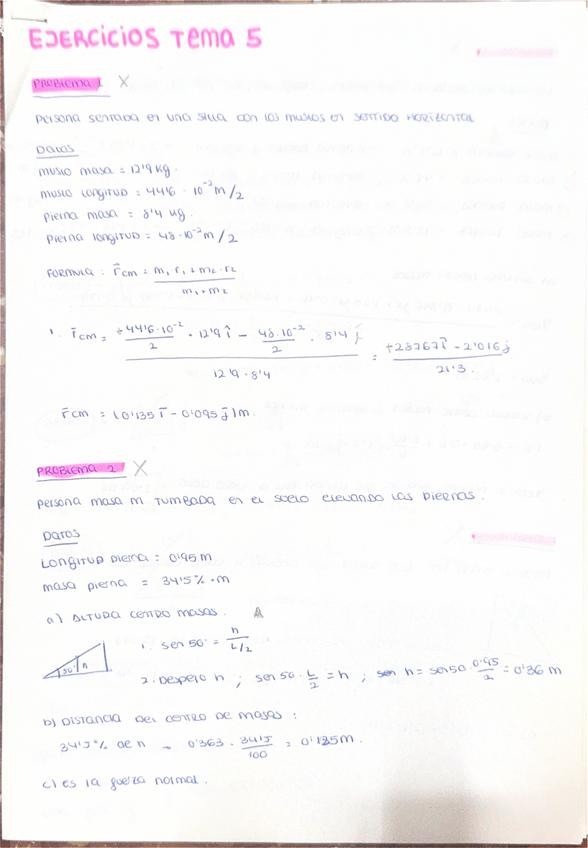 EJERCICIOS Tema 5
PROBLEMA 1 X
Persona sentada en una silla con los muslos en sentido Horizontal
Datos
muslo masa = 12'9 kg.
muslo longitud = 44'6 · 10⁻² m/2
Pierna masa = 8'4 kg.
Pierna longitud = 48·10⁻² m/2
FORMULA: r⃗cm = m₁ r₁ + m₂ · r₂ / m₁ + m₂
1. r̄cm = +44'6·10⁻²/2 · 12'9 î − 48·10⁻²/2 · 8'4 j / 12'9 · 8'4 = +2'8767î − 2'016j / 21'3.
r̄cm = (0'135 î − 0'095 j) m.
PROBLEMA 2 X
Persona masa m TUMBADA en el suelo elevando las piernas.
Datos
LONGITUD pierna = 0'95 m
masa pierna = 34'5% · m
a) ALTURA centro masas.
1. sen 50° = h / L/2
50° h
2. Despejo h ; sen 50 · L/2 = h ; sen h = sen 50 · 0'95/2 = 0'36 m
b) Distancia del centro de masas :
34'5% de h → 0'363 · 34'5/100 = 0'125m.
c) es la fuerza normal.